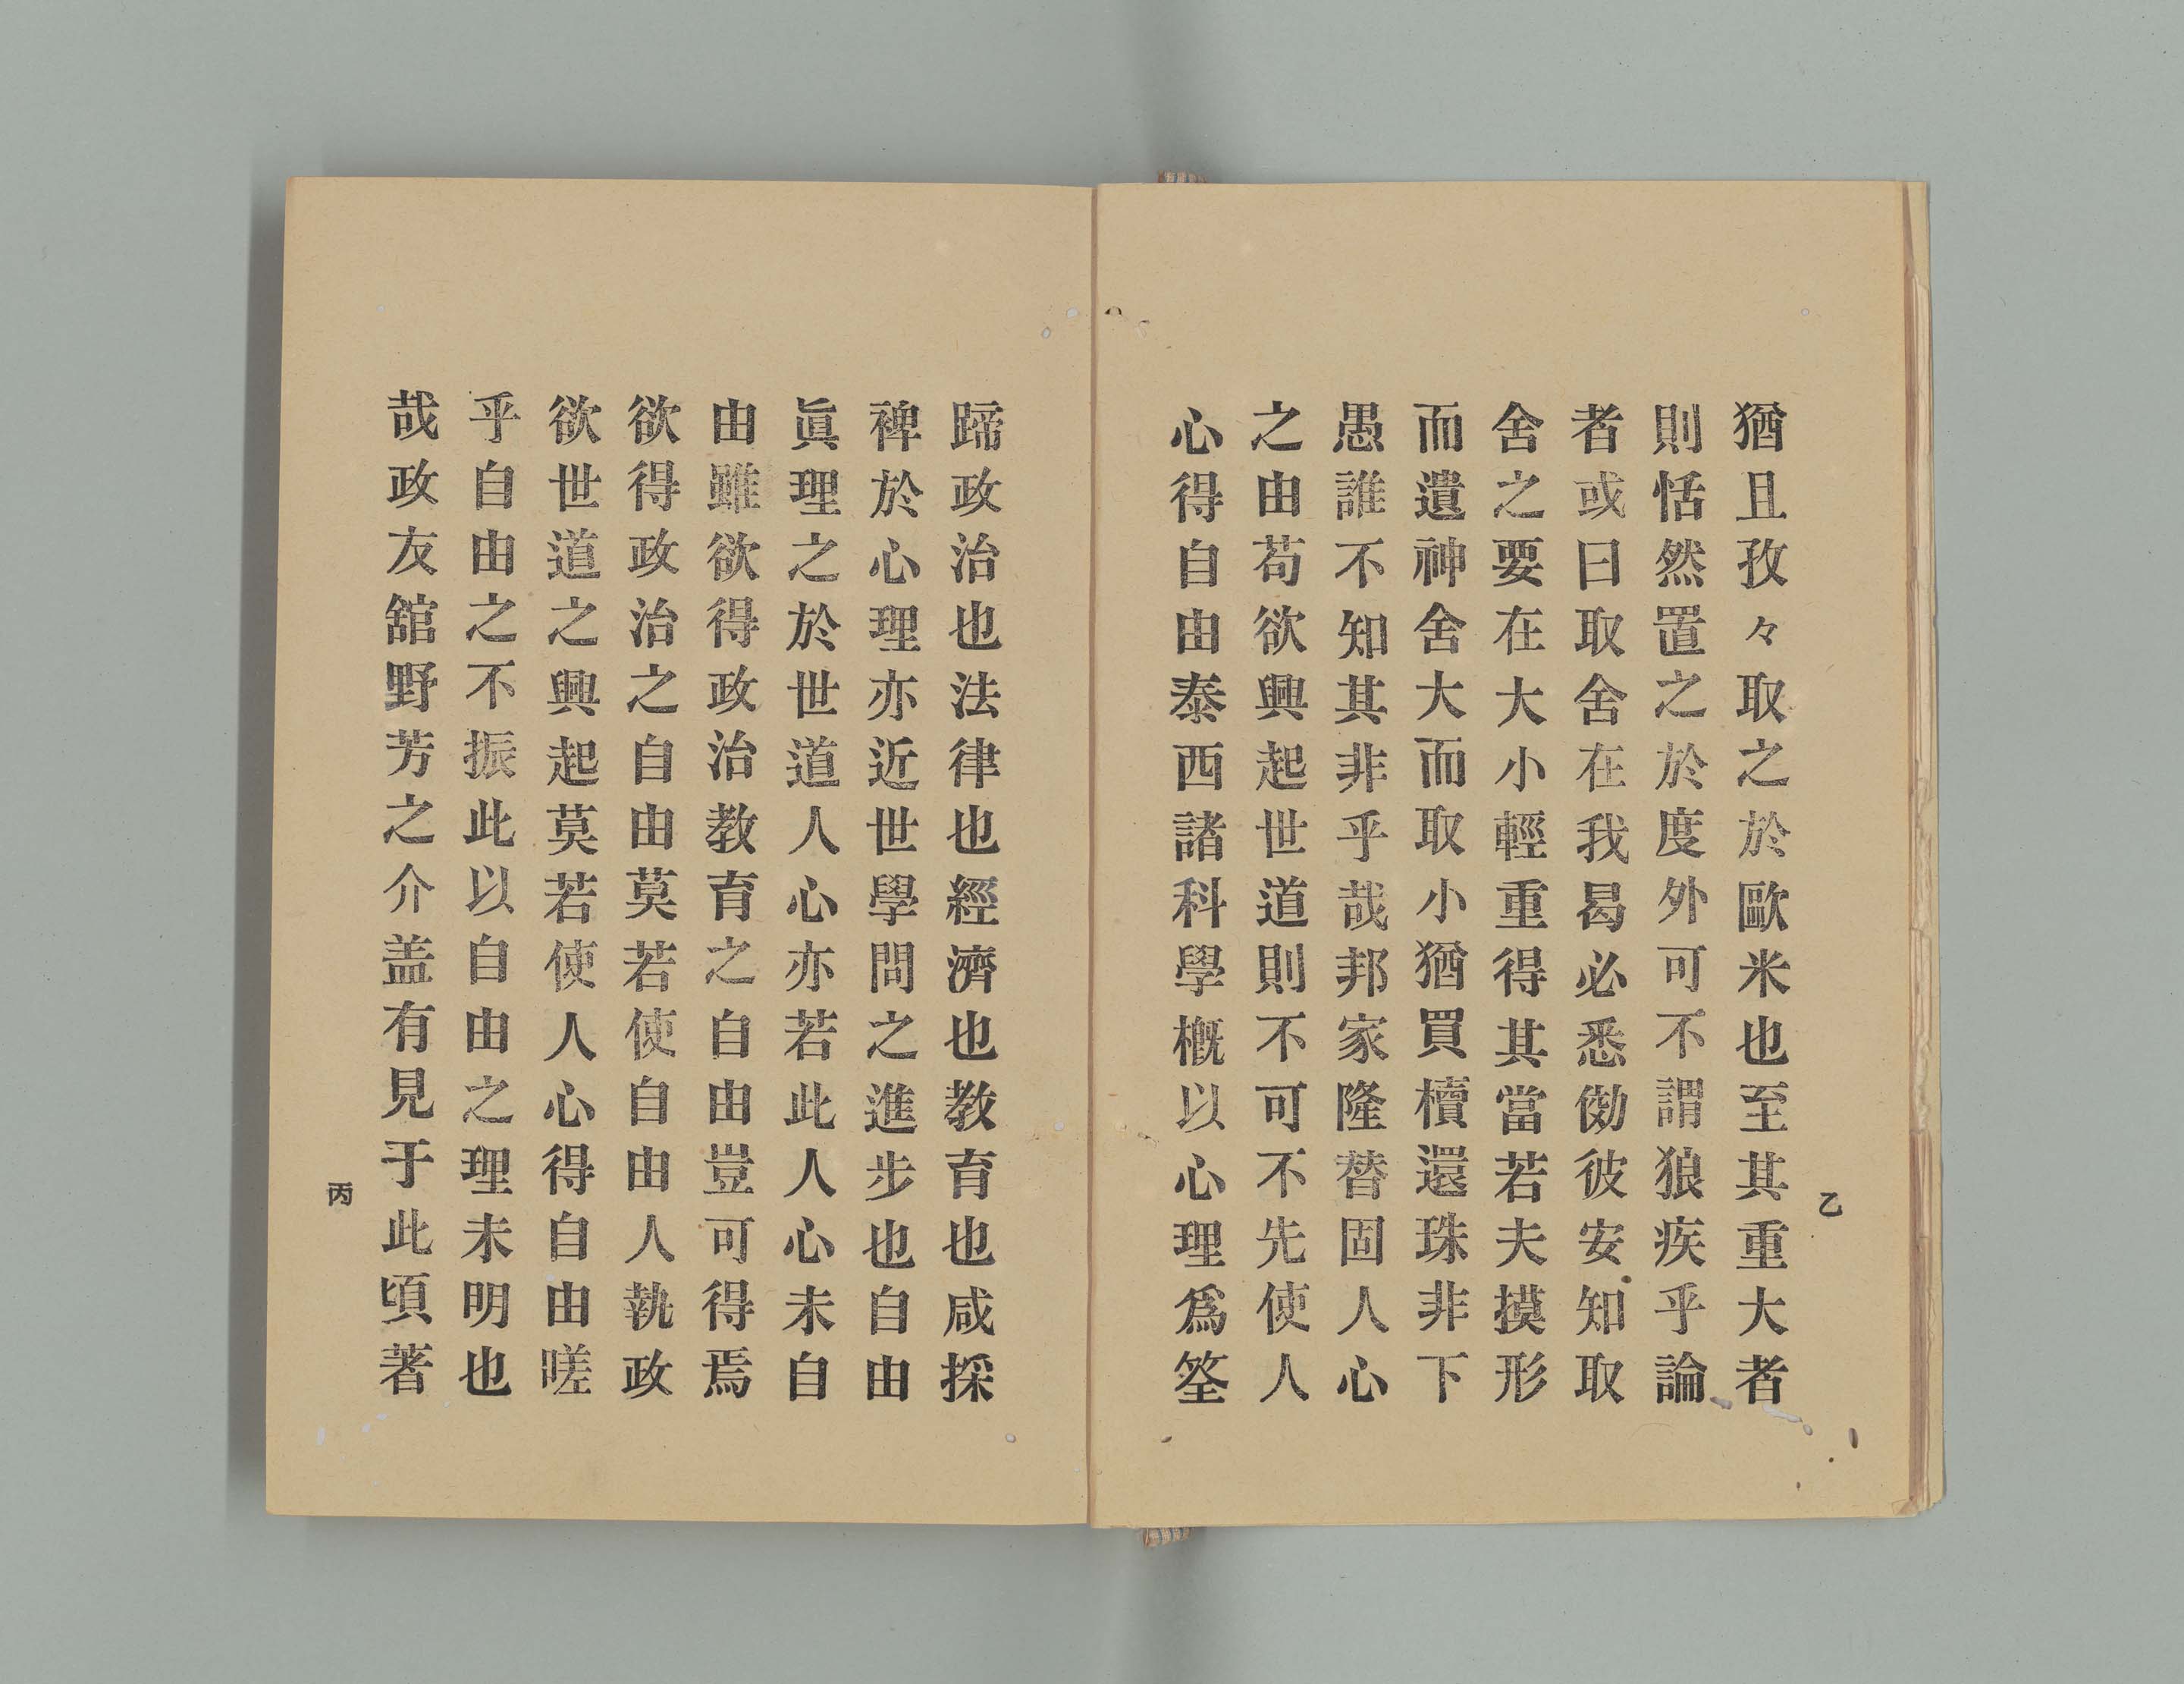 乙
猶且孜々取之於歐米也至其重大者
則恬然置之於度外可不謂狼疾乎論
者或曰取舍在我曷必悉傚彼安知取
舍之要在大小輕重得其當若夫摸形
而遺神舍大而取小猶買櫝還珠非下
愚誰不知其非乎哉邦家隆替固人心
之由苟欲興起世道則不可不先使人
心得自由泰西諸科學概以心理爲筌
蹄政治也法律也經濟也教育也咸採
裨於心理亦近世學問之進步也自由
眞理之於世道人心亦若此人心未自
由雖欲得政治教育之自由豈可得焉
欲得政治之自由莫若使自由人執政
欲世道之興起莫若使人心得自由嗟
乎自由之不振此以自由之理未明也
哉政友舘野芳之介盖有見于此頃著
丙